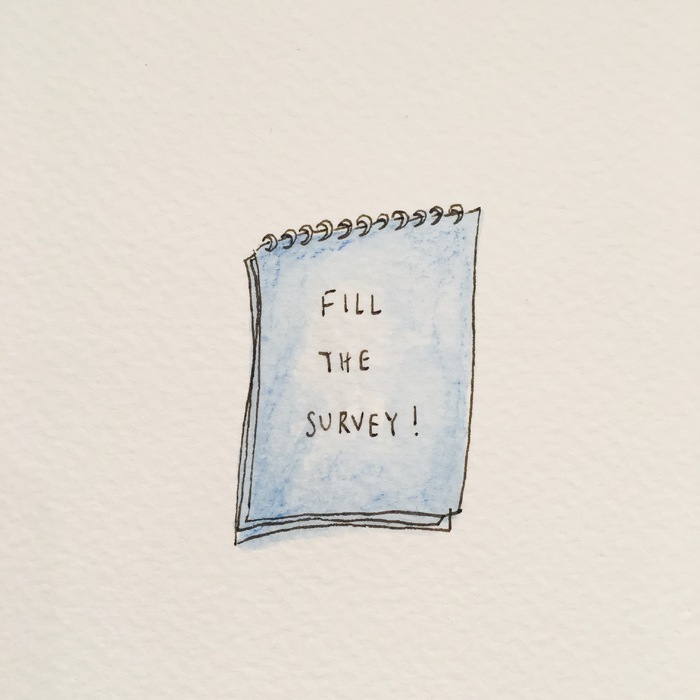 FILL
THE
SURVEY!